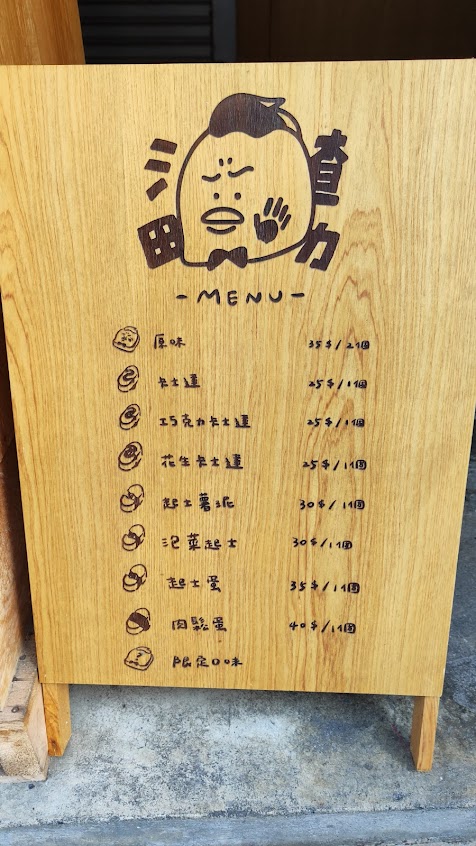 三田
查力
-MENU-
原味 35$/2個
卡士達 25$/1個
巧克力卡士達 25$/1個
花生卡士達 25$/1個
起士薯泥 30$/1個
泡菜起士 30$/1個
起士蛋 35$/1個
肉鬆蛋 40$/1個
限定口味